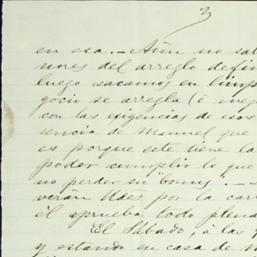 3
en esa.— Aún no sab
nores del arreglo defin
luego sacamos en limp
gocio se arregla (ó
con las exigencias de esos
sencia de Manuel que
es porque este tiene la
poder cumplir lo que
no perder su "bonus".—
verán Udes por la carr
él aprueba todo plena
El Sábado, á las
y estando en casa de M